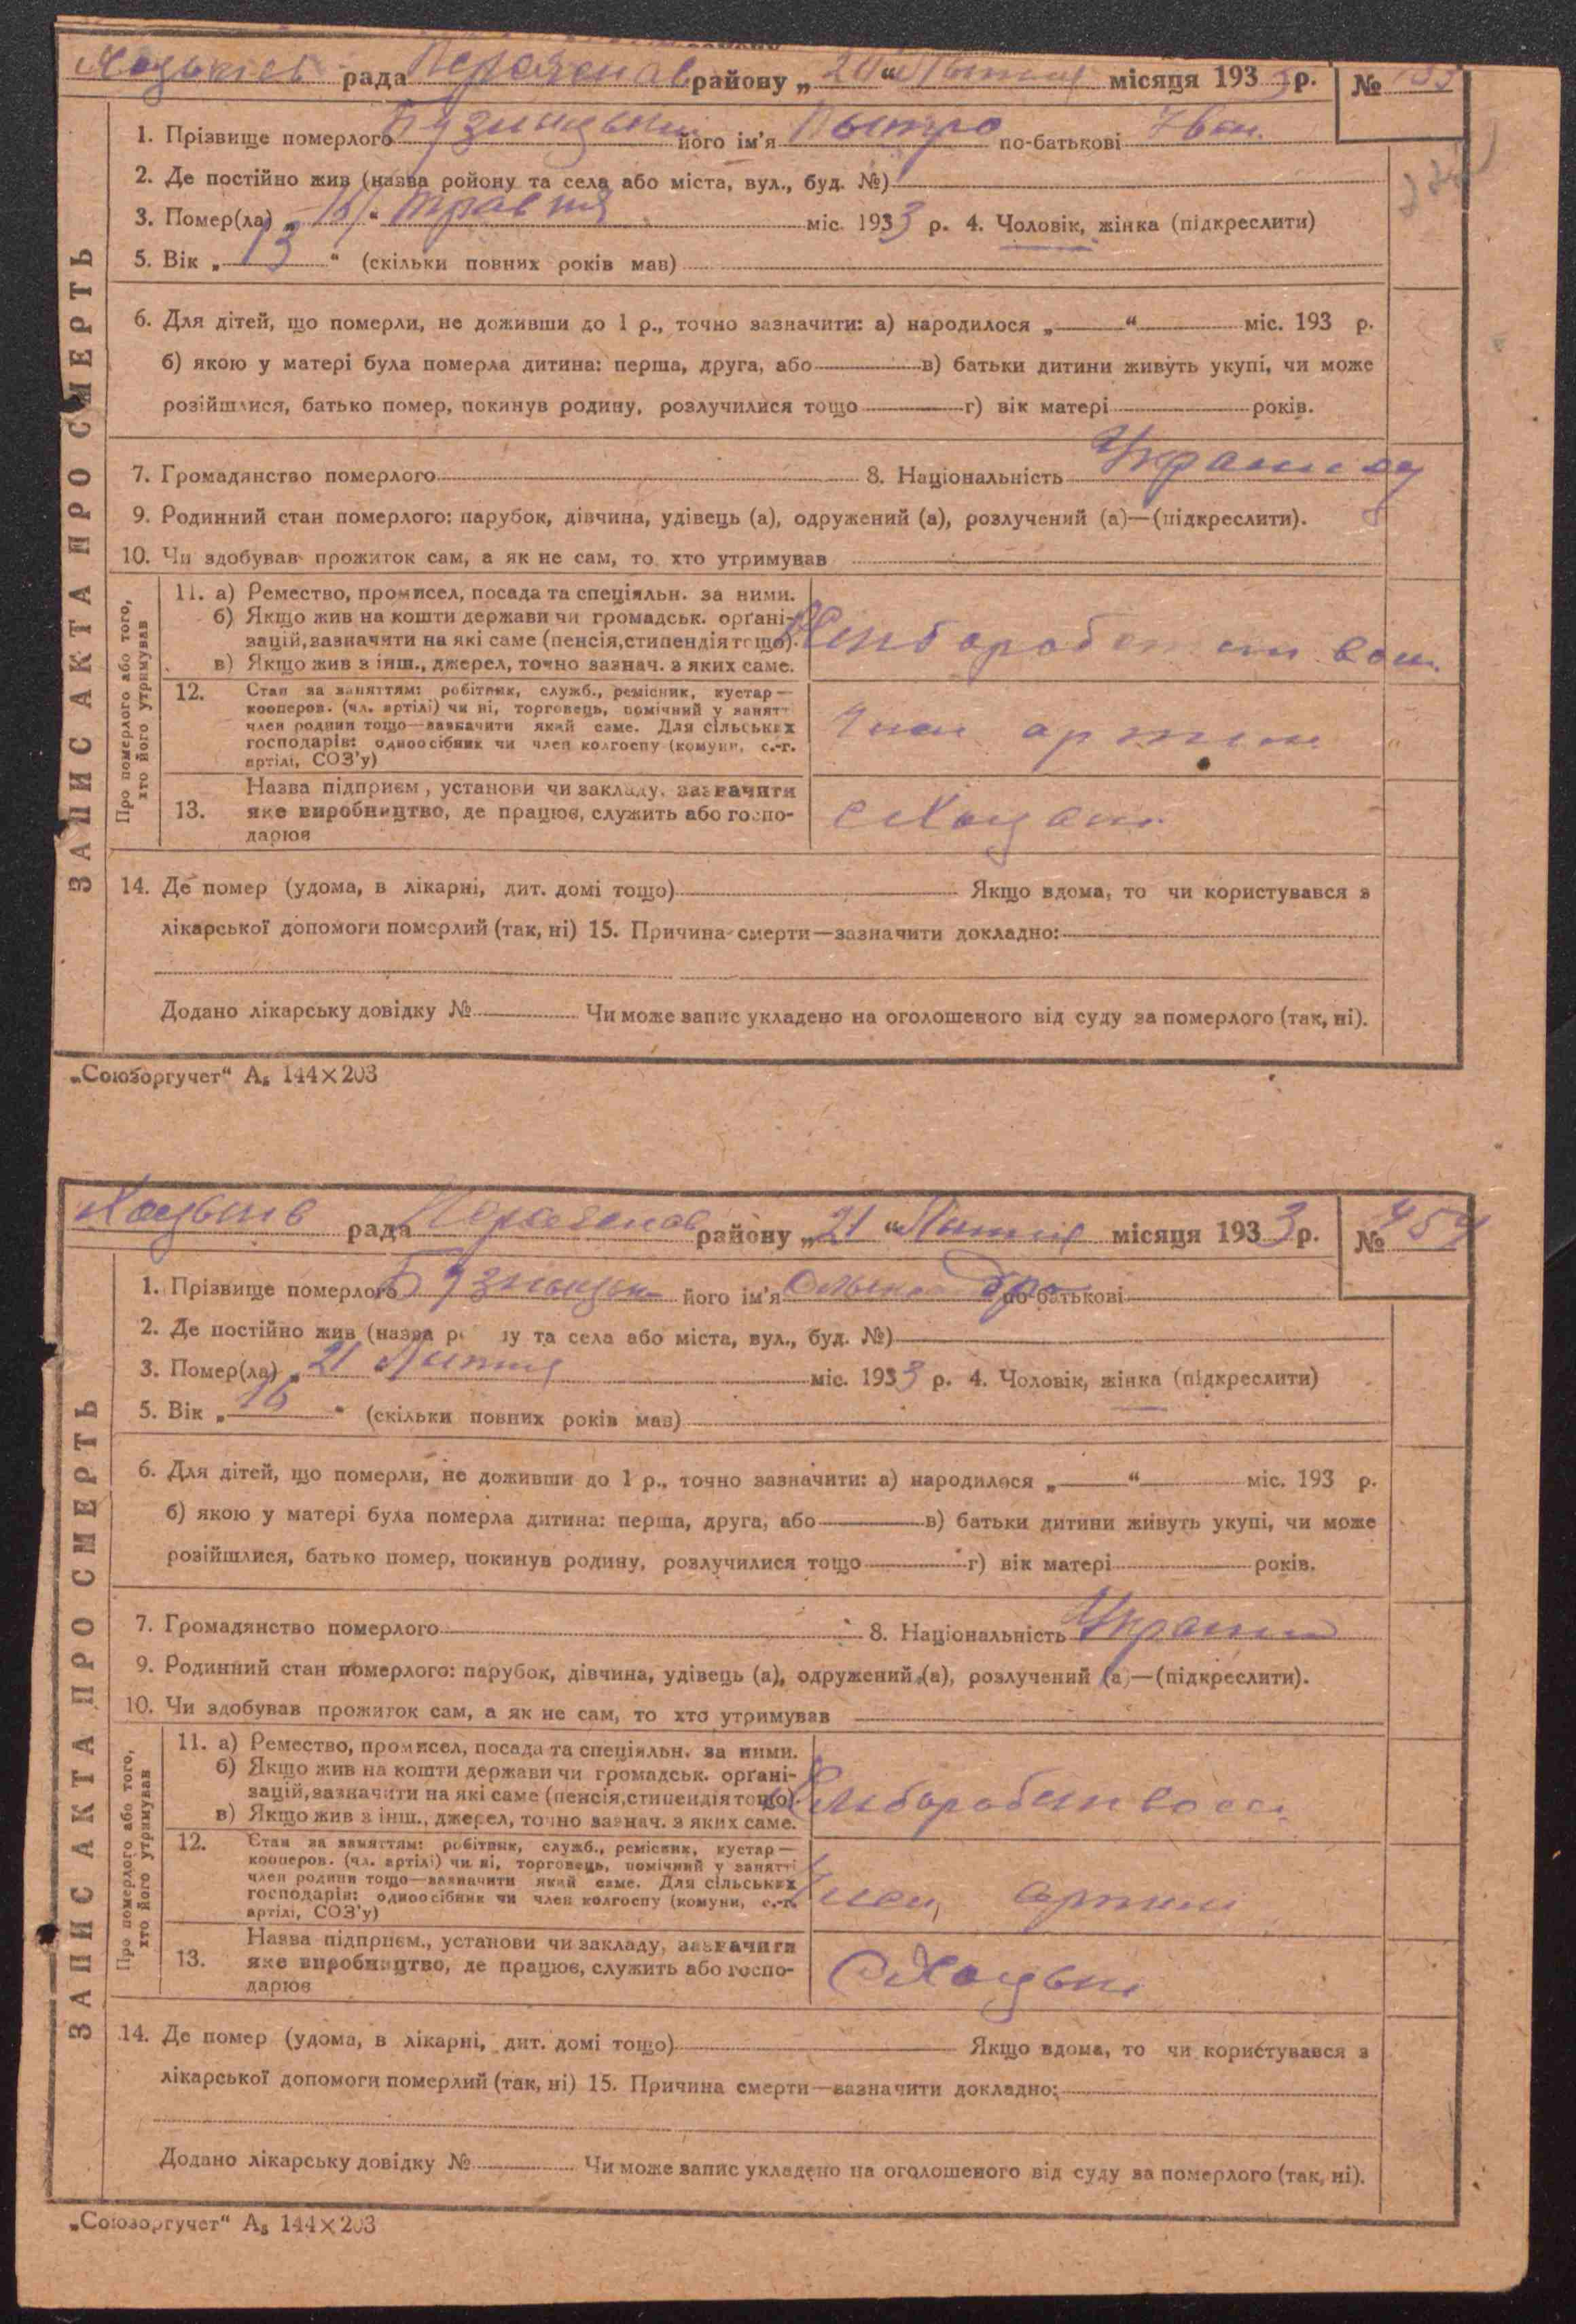 рада района „ 20 “ місяця 1933 р. №
1. Прізвище померлого його ім'я Пытро по-батькові Іван.
2. Де постійно жив (назва ройону та села або міста, вул., буд. №)
3. Помер(ла) „ “ травня міс. 1933 р. 4. Чоловік, жінка (підкреслити)
5. Вік „ 13 “ (скільки повних років мав)
6. Для дітей, що померли, не доживши до 1 р., точно зазначити: а) народилося „ “ міс. 193 р.
б) якою у матері була померла дитина: перша, друга, або в) батьки дитини живуть укупі, чи може
розійшлися, батько помер, покинув родину, розлучилися тощо г) вік матері років.
7. Громадянство померлого 8. Національність
9. Родинний стан померлого: парубок, дівчина, удівець (а), одружений (а), розлучений (а)—(підкреслити).
10. Чи здобував прожиток сам, а як не сам, то хто утримував
ЗАПИС АКТА ПРО СМЕРТЬ
Про померлого або того,
хто його утримував
11. а) Ремество, промисел, посада та спеціяльн. за ними.
б) Якщо жив на кошти держави чи громадськ. орґані-
зацій, зазначити на які саме (пенсія, стипендія тощо).
в) Якщо жив з інш., джерел, точно зазнач. з яких саме.
12. Стан за заняттям: робітник, служб., ремісник, кустар—
кооперов. (чл. артілі) чи ні, торговець, помічний у занятті
член родини тощо—зазначити який саме. Для сільських
господарів: одноосібник чи член колгоспу (комуни, с.-г.
артілі, СОЗ'у)
Член артили
Назва підприєм., установи чи закладу, зазначити
13. яке виробництво, де працює, служить або госпо-
дарює
14. Де помер (удома, в лікарні, дит. домі тощо) Якщо вдома, то чи користувався з
лікарської допомоги померлий (так, ні) 15. Причина смерти—зазначити докладно:
Додано лікарську довідку № Чи може запис укладено на оголошеного від суду за померлого (так, ні).
„Союзоргучет“ А₅ 144×203
рада району „ 21 “ місяця 1933 р. № 454
1. Прізвище померлого його ім'я по-батькові
2. Де постійно жив (назва ру та села або міста, вул., буд. №)
3. Помер(ла) „ 21 міс. 1933 р. 4. Чоловік, жінка (підкреслити)
5. Вік „ 16 “ (скільки повних років мав)
6. Для дітей, що померли, не доживши до 1 р., точно зазначити: а) народилося „ “ міс. 193 р.
б) якою у матері була померла дитина: перша, друга, або в) батьки дитини живуть укупі, чи може
розійшлися, батько помер, покинув родину, розлучилися тощо г) вік матері років.
7. Громадянство померлого 8. Національність
9. Родинний стан померлого: парубок, дівчина, удівець (а), одружений (а), розлучений (а)—(підкреслити).
10. Чи здобував прожиток сам, а як не сам, то хто утримував
ЗАПИС АКТА ПРО СМЕРТЬ
Про померлого або того,
хто його утримував
11. а) Ремество, промисел, посада та спеціяльн. за ними.
б) Якщо жив на кошти держави чи громадськ. орґані-
зацій, зазначити на які саме (пенсія, стипендія тощо).
в) Якщо жив з інш., джерел, точно зазнач. з яких саме.
12. Стан за заняттям: робітник, служб., ремісник, кустар—
кооперов. (чл. артілі) чи ні, торговець, помічний у занятті
член родини тощо—зазначити який саме. Для сільських
господарів: одноосібник чи член колгоспу (комуни, с.-г.
артілі, СОЗ'у)
Член артили
Назва підприєм., установи чи закладу, зазначити
13. яке виробництво, де працює, служить або госпо-
дарює
14. Де помер (удома, в лікарні, дит. домі тощо) Якщо вдома, то чи користувався з
лікарської допомоги померлий (так, ні) 15. Причина смерти—зазначити докладно:
Додано лікарську довідку № Чи може запис укладено на оголошеного від суду за померлого (так, ні).
„Союзоргучет“ А₅ 144×203